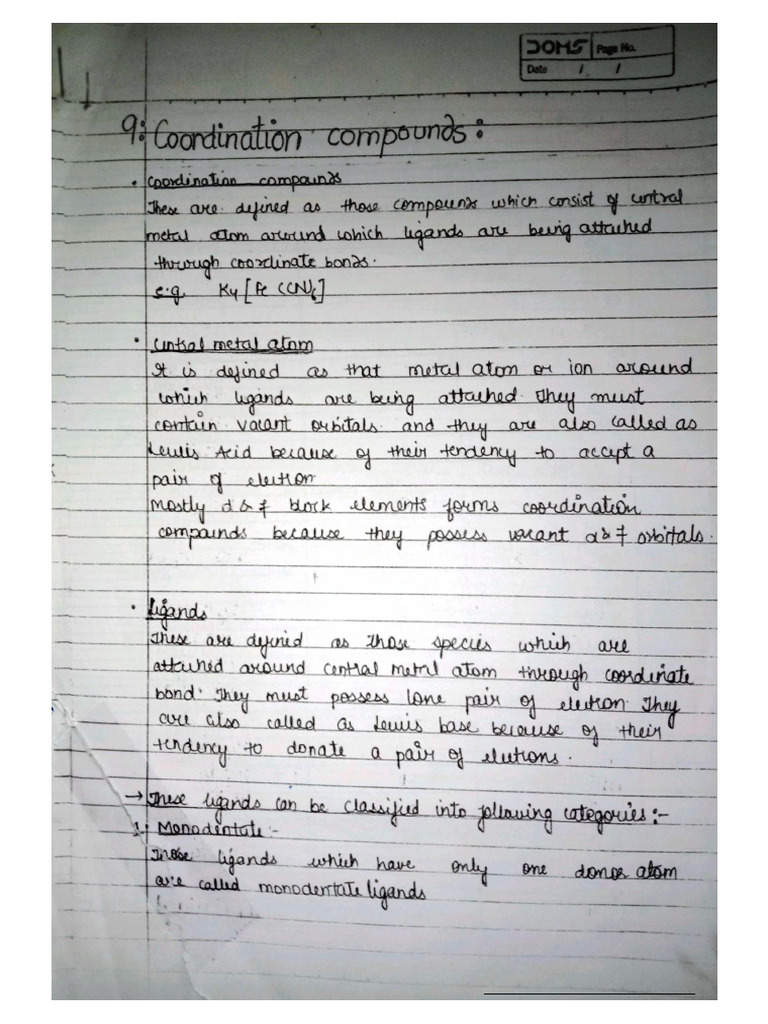 DOMS Page No.
Date / /
9: Coordination compounds:
• Coordination compounds
These are defined as those compounds which consist of central
metal atom around which ligands are being attached
through coordinate bonds.
e.g. K4[Fe(CN)6]
• Central metal atom
It is defined as that metal atom or ion around
which ligands are being attached. They must
contain vacant orbitals and they are also called as
Lewis Acid because of their tendency to accept a
pair of electron
Mostly d & f block elements forms coordination
compounds because they possess vacant d & f orbitals.
• Ligands
These are defined as those species which are
attached around central metal atom through coordinate
bond. They must possess lone pair of electron. They
are also called as Lewis base because of their
tendency to donate a pair of elutions.
→ These ligands can be classified into following categories:-
1. Monodentate:-
Those ligands which have only one donor atom
are called monodentate ligands